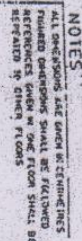 NOTES
ALL DIMENSIONS ARE GIVEN IN CENTIMETRES
FIGURED DIMENSIONS SHALL BE FOLLOWED
REFERENCES GIVEN IN ONE FLOOR SHALL BE
REPEATED IN OTHER FLOORS